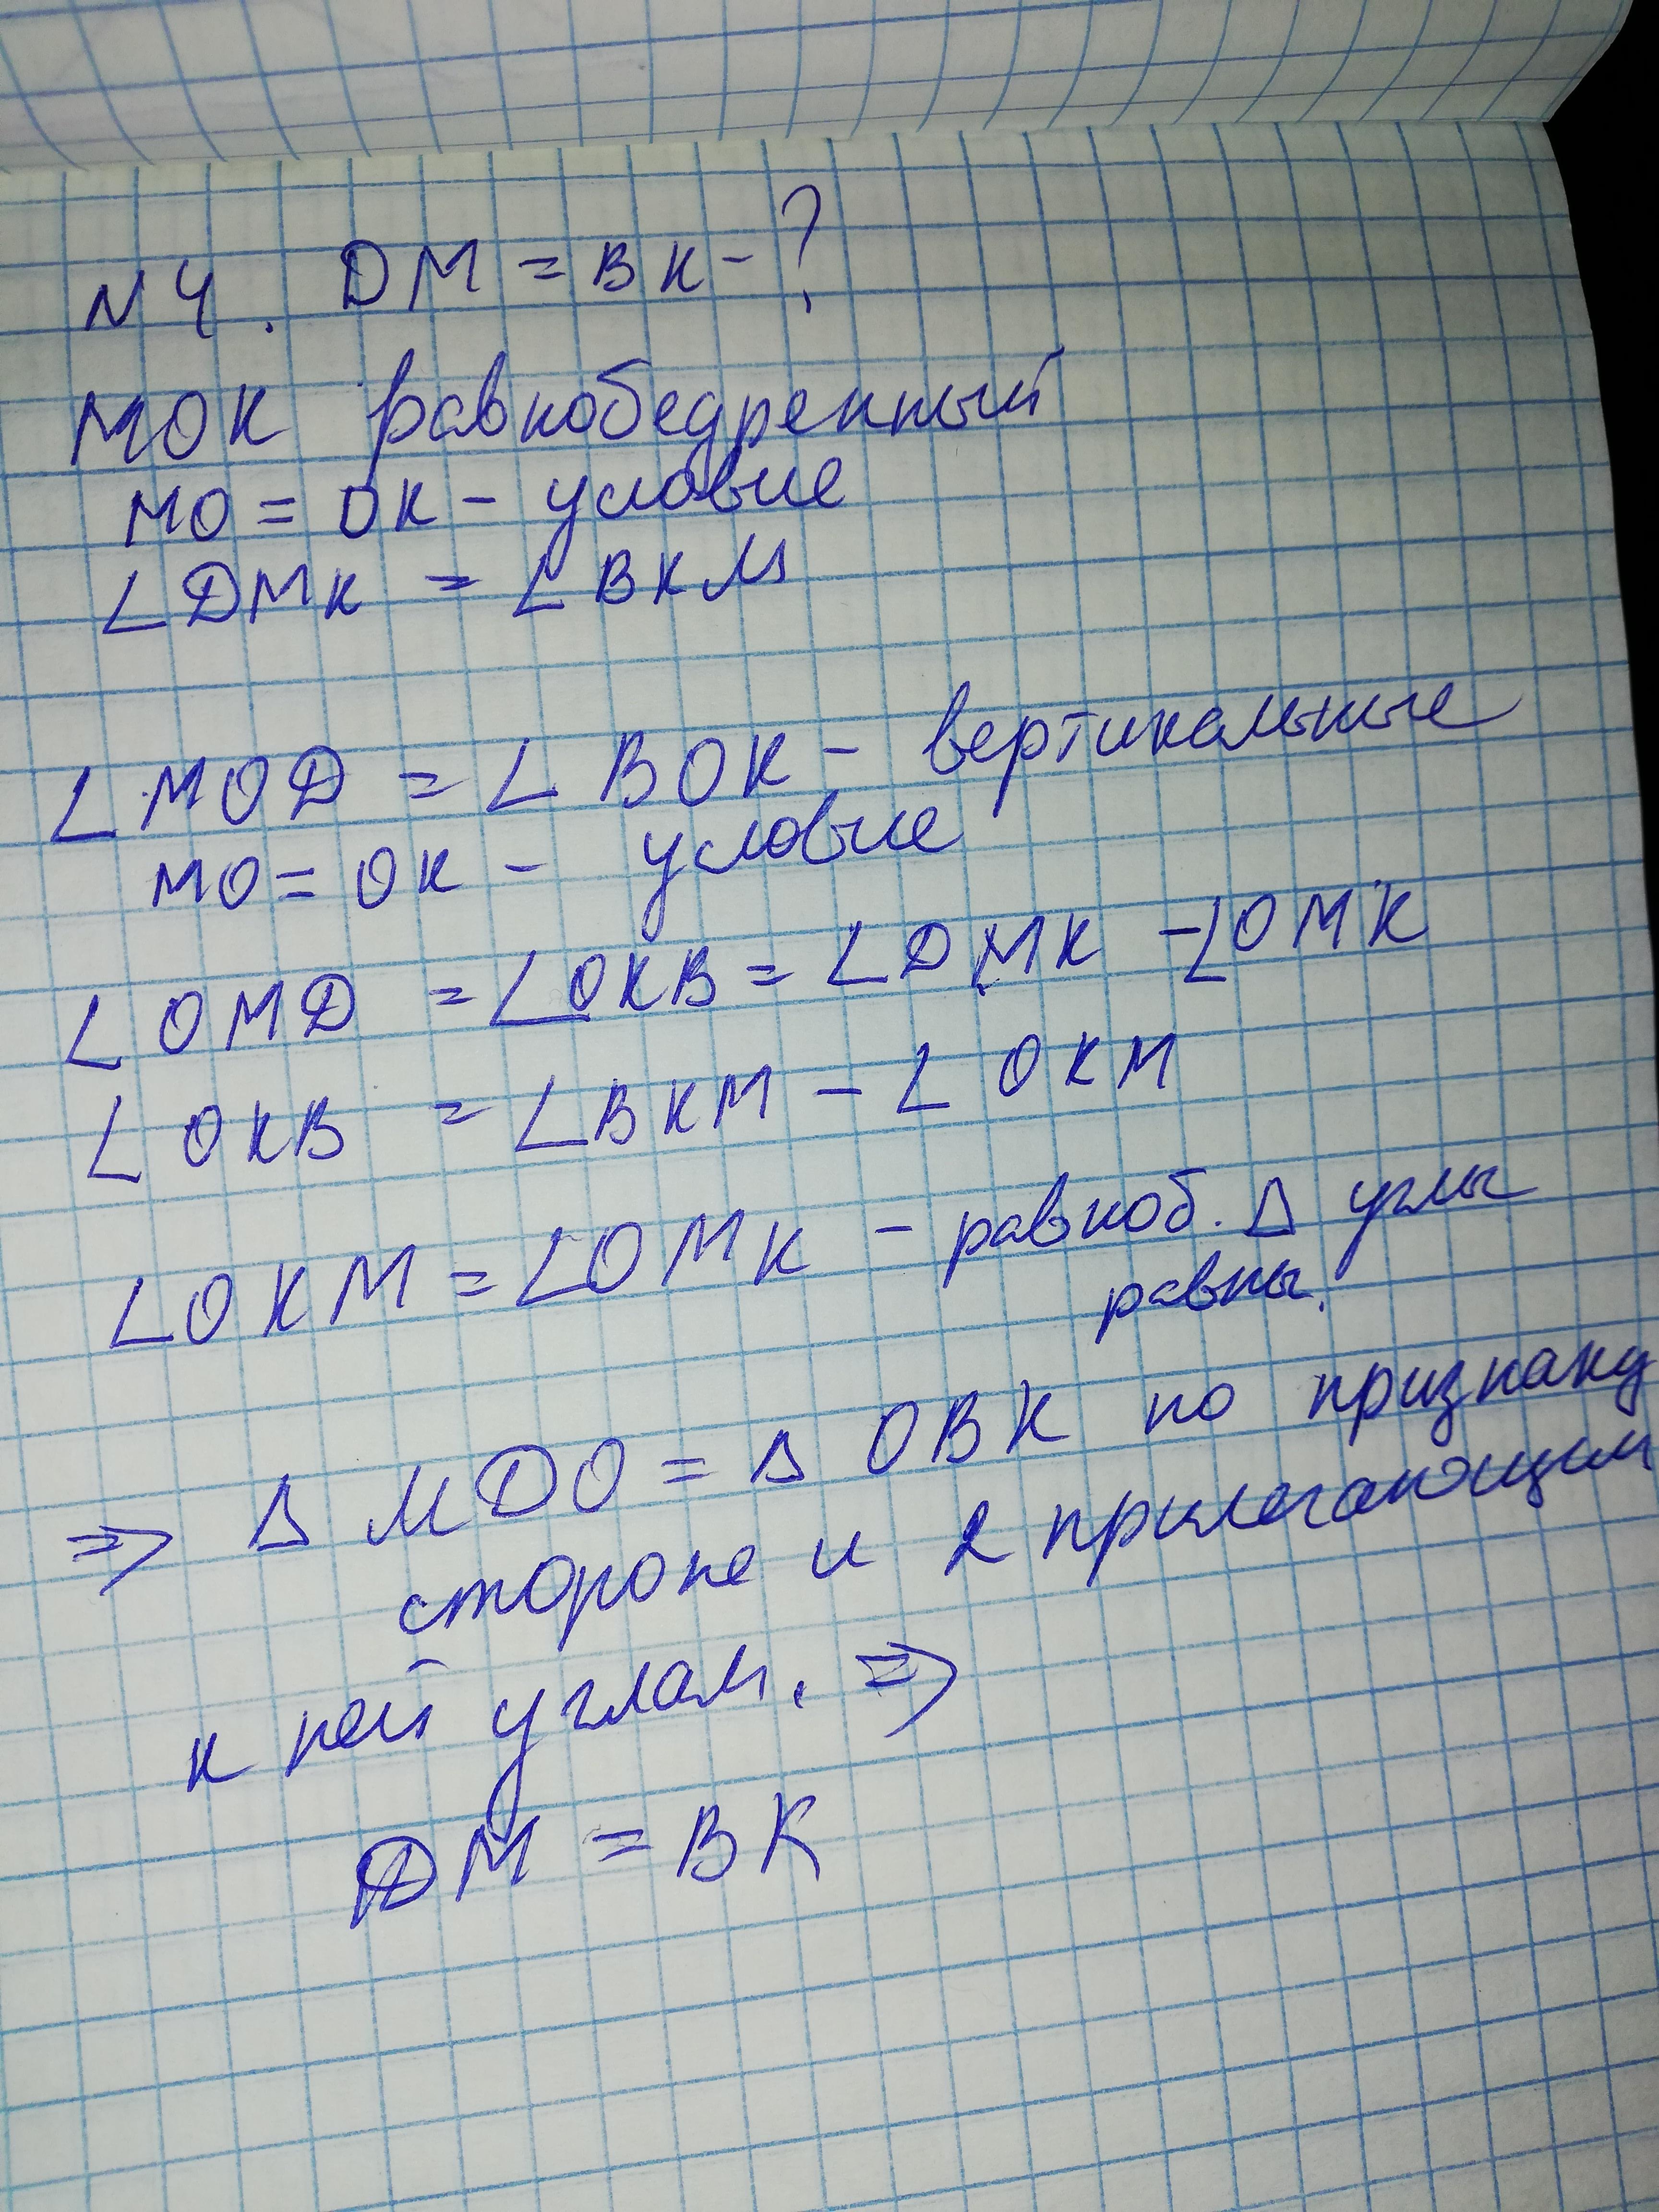 N4. DM = BK - ?
MOK равнобедренный
MO = OK - условие
∠DMK = ∠BKM
∠MOD = ∠BOK - вертикальные
MO = OK - условие
∠OMD = ∠OKB = ∠DMK - ∠OMK
∠OKB = ∠BKM - ∠OKM
∠OKM = ∠OMK - равноб. Δ углы
равны.
⇒ Δ MDO = Δ OBK по признаку
стороне и 2 прилегающим
к ней углам. ⇒
DM = BK